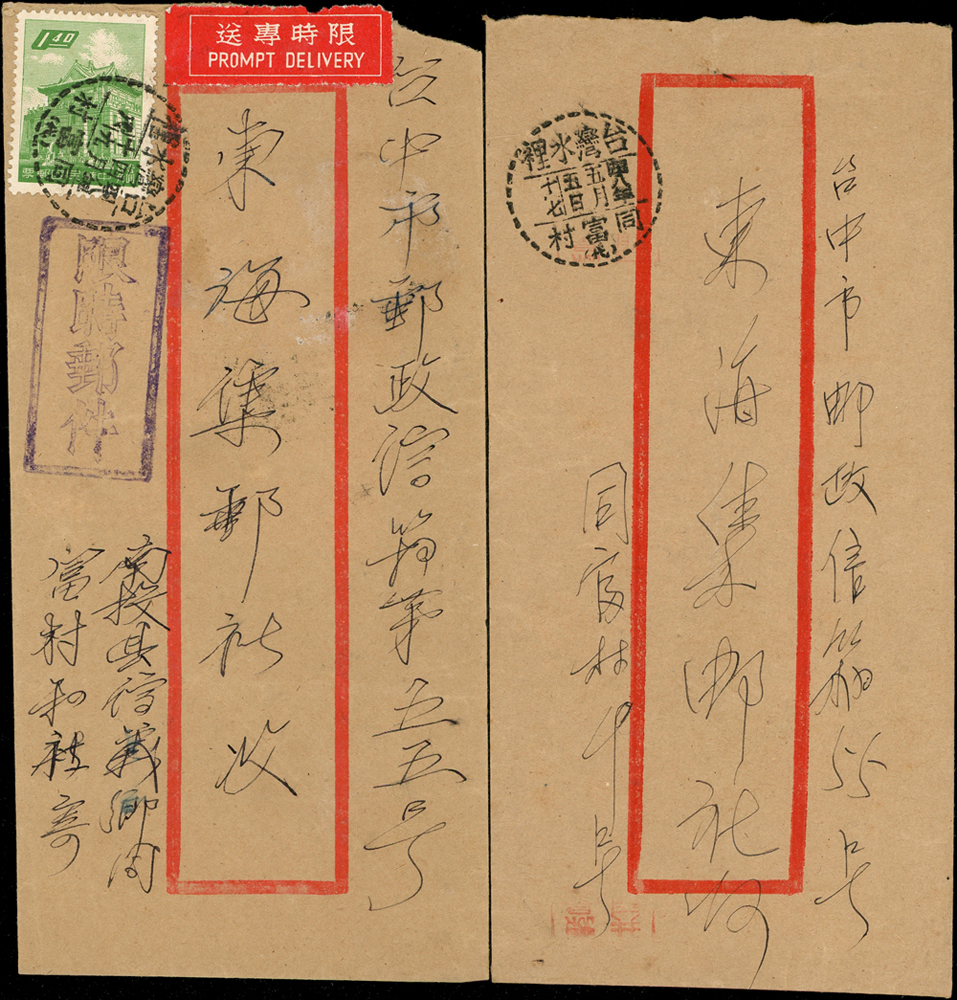 1.40
限時專送
PROMPT DELIVERY
台中市郵政信箱第五五号
東海集郵社收
限時郵件
南投县信義鄉同
富村和社寄
台中市邮政信箱55号
東海集邮社
同富村
台灣水裡
五月
五日
十七
同富村
(代)